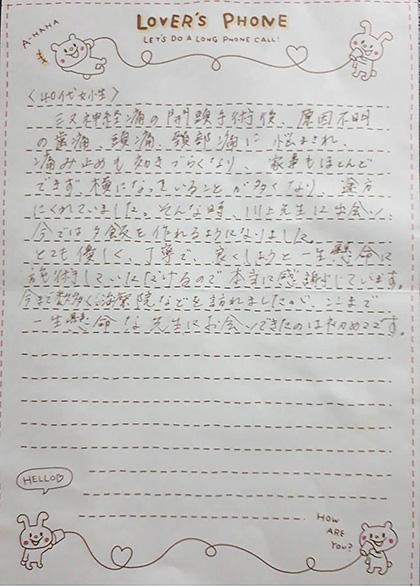 A-HAHA
LOVER'S PHONE
LET'S DO A LONG PHONE CALL!
〈40代女性〉
三叉神経痛の開頭手術後、原因不明
の歯痛、頭痛、頚部痛に悩まされ、
痛み止めも効きづらくなり、家事もほとんど
できず、横になっていることが多くなり、途方
にくれていました。そんな時、川上先生に出会い、
今では夕飯を作れるようになりました。
とても優しく、丁寧で、良くしようと一生懸命に
施術していただけるので本当に感謝しています。
今まで数多く治療院などを訪れましたが、ここまで
一生懸命な先生にお会いできたのは初めてです。
HELLO♡
HOW
ARE
YOU?